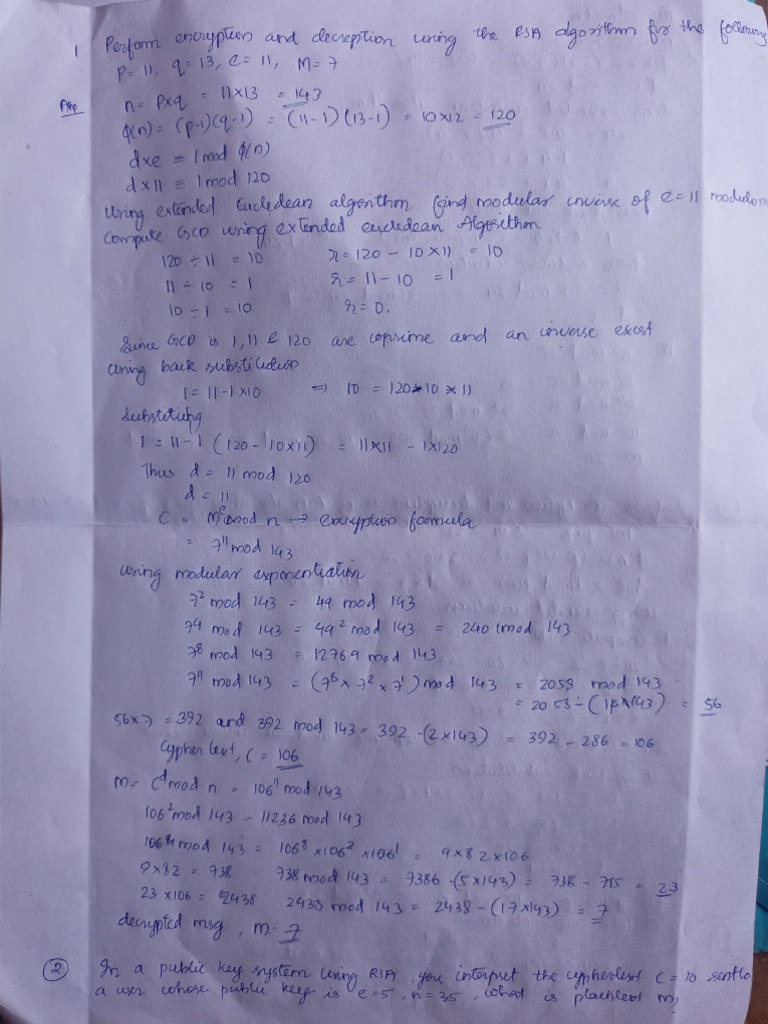 1 Perform encryption and decreption using the RSA algorithm for the following
P=11, q=13, e=11, M=7
Ans n= p×q = 11×13 = 143
φ(n)= (p-1)(q-1) = (11-1)(13-1) = 10×12 = 120
d×e ≡ 1 mod φ(n)
d×11 ≡ 1 mod 120
Using extended Eucledean algorithm find modular inverse of e=11 modulo
Compute GCD using extended eucledean Algorithm
120 ÷ 11 = 10 r = 120 - 10×11 = 10
11 ÷ 10 = 1 r = 11-10 = 1
10 ÷ 1 = 10 r = 0.
Since GCD is 1, 11 & 120 are coprime and an inverse exist
Using back substitution
1 = 11-1×10 ⇒ 10 = 120-10×11
Substituting
1 = 11-1 (120-10×11) = 11×11 - 1×120
Thus d = 11 mod 120
d = 11
C = M^e mod n → encryption formula
= 7^11 mod 143
Using modular exponentiation
7^2 mod 143 = 49 mod 143
7^4 mod 143 = 49^2 mod 143 = 2401 mod 143
7^8 mod 143 = 12769 mod 143
7^11 mod 143 = (7^8 × 7^2 × 7^1) mod 143 = 2058 mod 143
= 2058 - (14×143) = 56
56×7 = 392 and 392 mod 143 = 392 -(2×143) = 392 - 286 = 106
Cypher text, C = 106
M= C^d mod n = 106^11 mod 143
106^2 mod 143 - 11236 mod 143
106^11 mod 143 = 106^8 ×106^2 ×106^1 = 9×82×106
9×82 = 738 738 mod 143 = 7386 -(5×143) = 738 - 715 = 23
23 ×106 = 2438 2438 mod 143 = 2438 -(17×143) = 7
decrypted msg, M= 7
2 In a public key system using RSA, you interpset the cyphertext C = 10 sent to
a user whose public key is e=5, n=35, what is plaintext M?